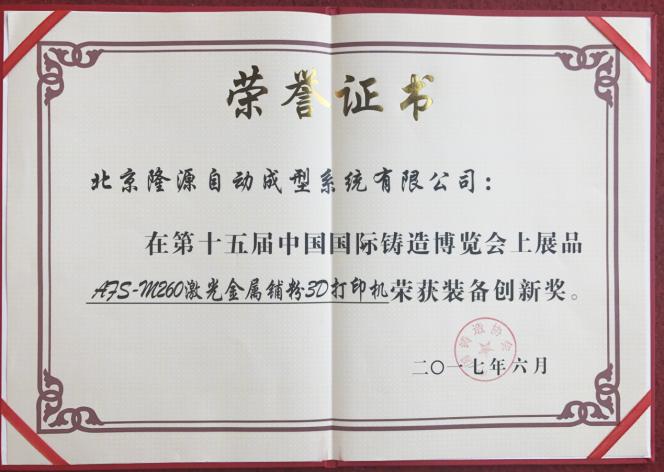 荣誉证书
北京隆源自动成型系统有限公司：
在第十五届中国国际铸造博览会上展品
AFS-M260激光金属铺粉3D打印机荣获装备创新奖。
铸造协会
二〇一七年六月